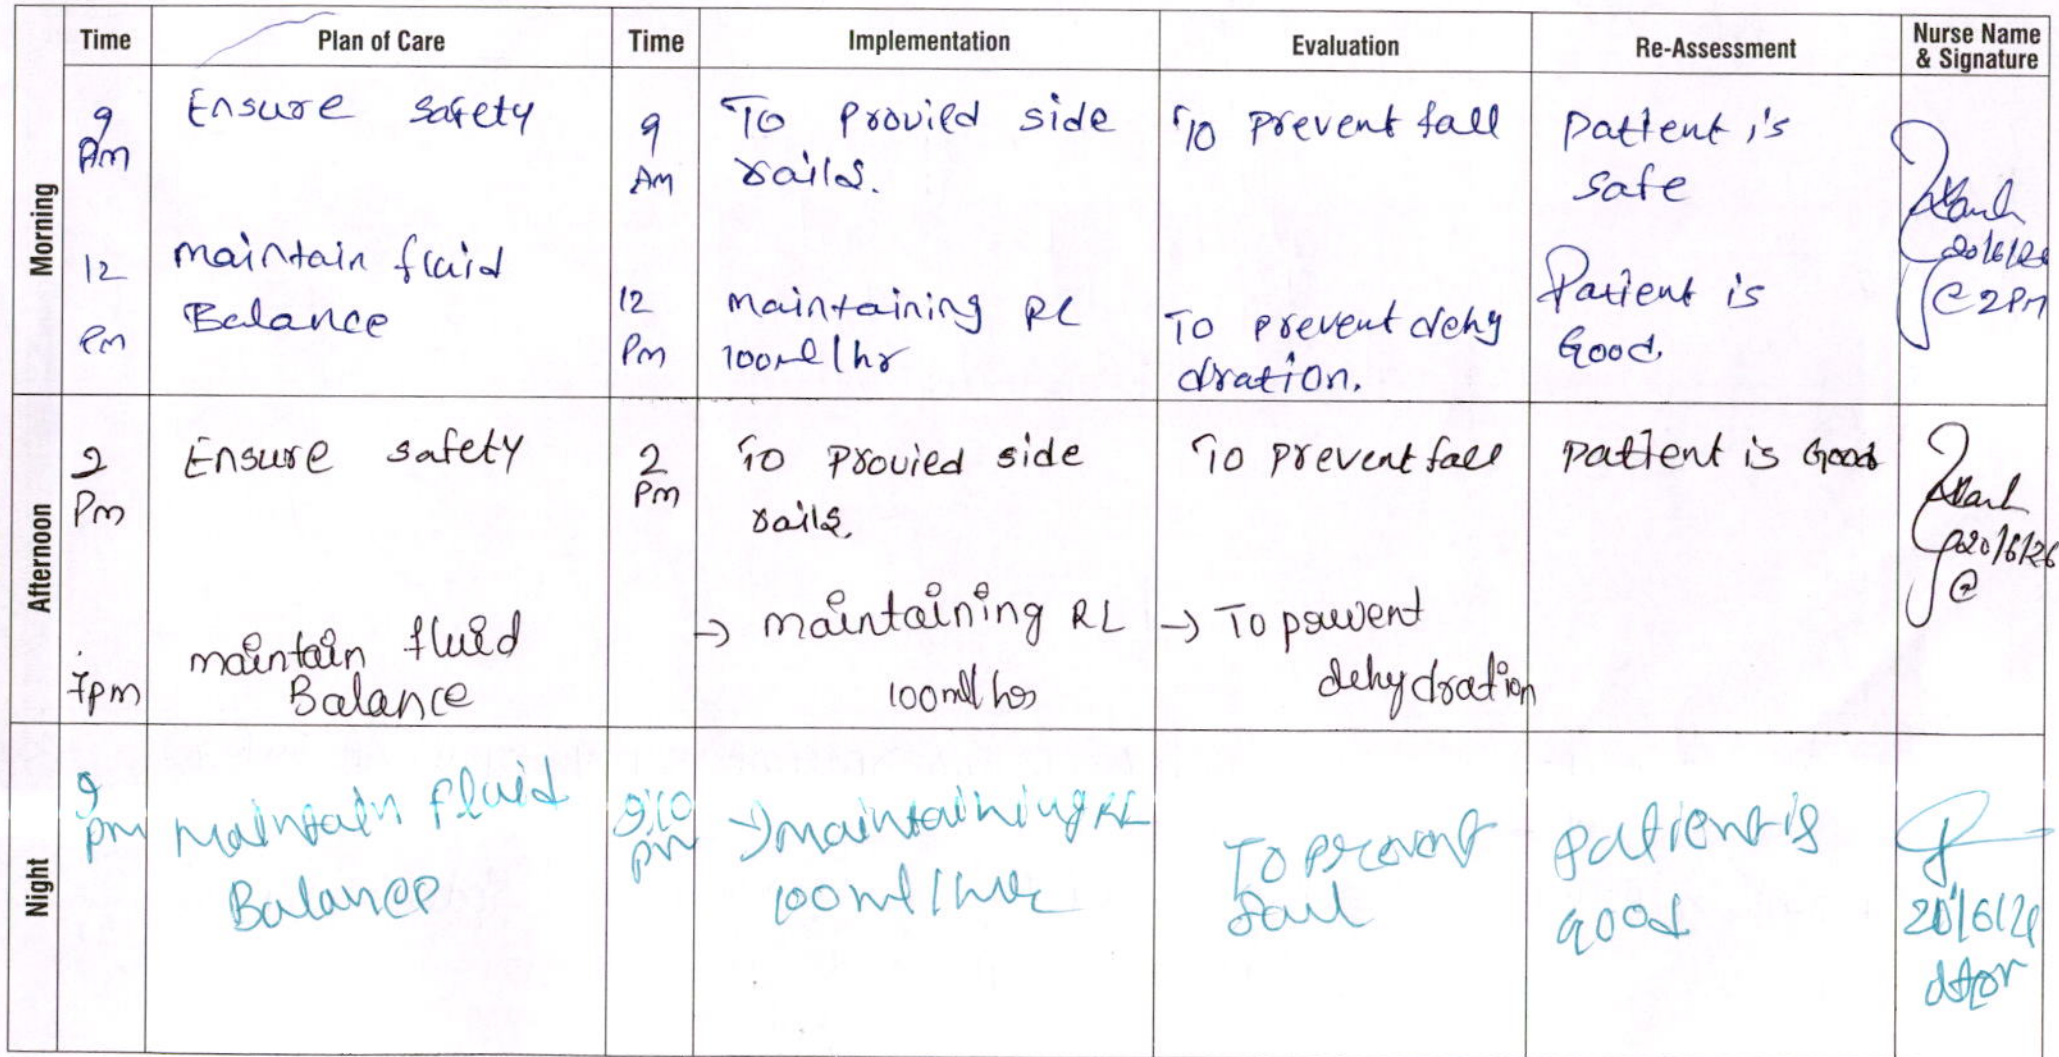 Time Plan of Care Time Implementation Evaluation Re-Assessment Nurse Name & Signature
Morning
9 Am Ensure safety 9 Am To Provied side rails. To Prevent fall Patient is safe
12 Pm maintain fluid Balance 12 Pm maintaining RL 100ml/hr To prevent dehydration. Patient is Good.
20/6/26 @ 2Pm
Afternoon
2 Pm Ensure safety 2 Pm To Provied side rails. To Prevent fall Patient is Good
20/6/26 @
7pm maintain fluid Balance → maintaining RL 100ml/hr → To prevent dehydration
Night
9 pm Maintain fluid Balance 9:10 pm → maintaining RL 100ml/hr To prevent fall patient is good